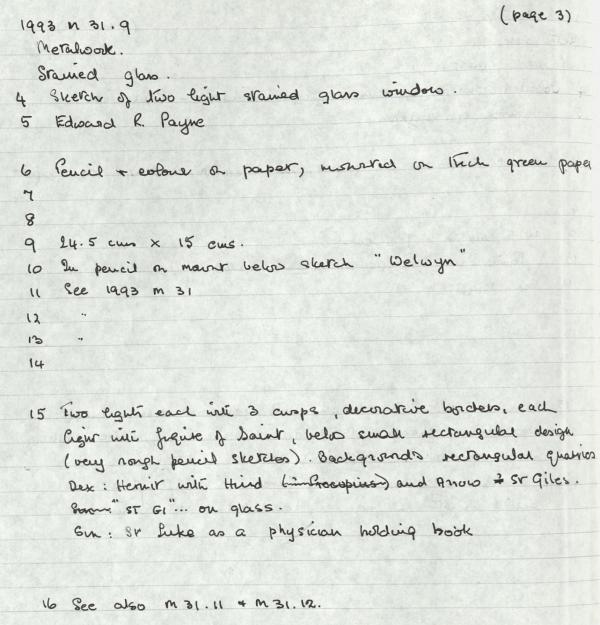 (page 3)
1993 M 31.9
Metalwork.
Stained glass.
4 Sketch of two light stained glass window.
5 Edward R. Payne
6 Pencil + colour on paper, mounted on thick green paper
7
8
9 24.5 cms × 15 cms.
10 In pencil on mount below sketch "Welwyn"
11 See 1993 M 31
12 "
13 "
14
15 Two lights each with 3 cusps, decorative borders, each
light with figure of Saint, below small rectangular design
(very rough pencil sketches). Backgrounds rectangular quarries
Dex: Hermit with Hind (= Procopius) and Arrow = St Giles.
"ST GI"... on glass.
Sin: St Luke as a physician holding book
16 See also M 31.11 + M 31.12.